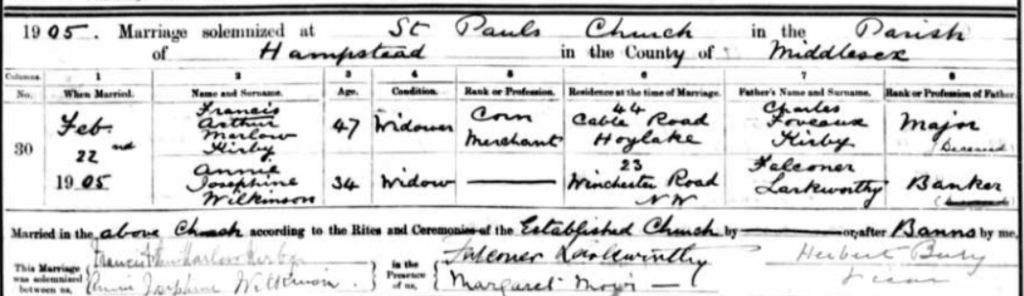 1905. Marriage solemnized at St Pauls Church in the Parish
of Hampstead in the County of Middlesex
Columns. 1 2 3 4 5 6 7 8
No. When Married. Name and Surname. Age. Condition. Rank or Profession. Residence at the time of Marriage. Father's Name and Surname. Rank or Profession of Father.
30
Feb.
22nd
1905
Francis
Arthur
Marlow
Kirby
47
Widower
Corn
Merchant
44
Cable Road
Hoylake
Charles
Foveaux
Kirby
Major
(Deceased)
Annie
Josephine
Wilkinson
34
Widow
23
Winchester Road
NW
Falconer
Larkworthy
Banker
Married in the above Church according to the Rites and Ceremonies of the Established Church by or after Banns by me,
This Marriage was solemnized between us,
Francis Arthur Marlow Kirby
Annie Josephine Wilkinson.
in the Presence of us,
Falconer Larkworthy
Margaret
Herbert Bury
Vicar